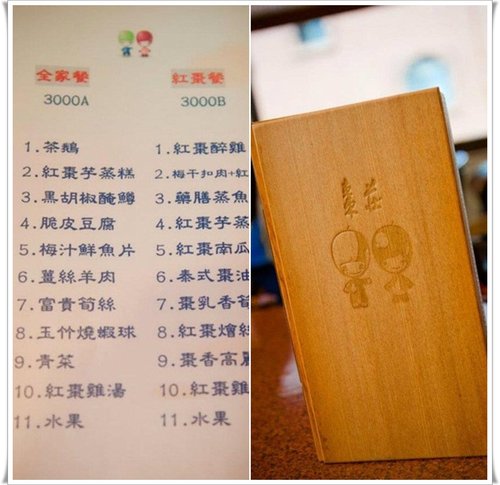 全家餐
3000A
1.茶鵝
2.紅棗芋蒸糕
3.黑胡椒醃鱒
4.脆皮豆腐
5.梅汁鮮魚片
6.薑絲羊肉
7.富貴筍絲
8.玉竹燒蝦球
9.青菜
10.紅棗雞湯
11.水果
紅棗餐
3000B
1.紅棗醉雞
2.梅干扣肉+紅
3.藥膳蒸魚
4.紅棗芋蒸
5.紅棗南瓜
6.泰式棗油
7.棗乳香筍
8.紅棗燴絲
9.棗香高麗
10.紅棗雞
11.水果
棗莊